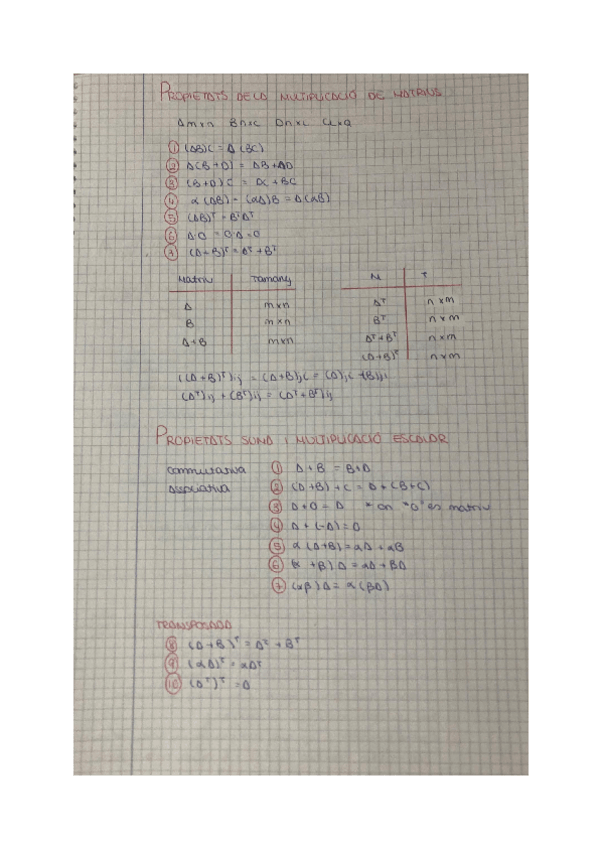 PROPIETATS DE LA MULTIPLICACIÓ DE MATRIUS
Amxn Bnxc Dnxc
① (AB)C = A(BC)
② A(B+D) = AB+AD
③ (B+D)C = DC+BC
④ α(AB) = (αA)B = A(αB)
⑤ (AB)ᵀ = BᵀAᵀ
⑥ A·O = O·A = O
⑦ (A+B)ᵀ = Aᵀ+Bᵀ
Matriu Tamany
A mxn
B mxn
A+B mxn
M T
Aᵀ nxm
Bᵀ nxm
Aᵀ+Bᵀ nxm
(A+B)ᵀ nxm
((A+B)ᵀ)ij = (A+B)ji = (A)ji+(B)ji
(Aᵀ)ij + (Bᵀ)ij = (Aᵀ+Bᵀ)ij
PROPIETATS SUMA I MULTIPLICACIÓ ESCALAR
commutativa ① A+B = B+A
associativa ② (A+B)+C = A+(B+C)
③ A+O = A * on "O" és matriu
④ A+(-A)=O
⑤ α(A+B)=αA+αB
⑥ (α+β)A=αA+βA
⑦ (αβ)A = α(βA)
TRANSPOSADA
⑧ (A+B)ᵀ = Aᵀ+Bᵀ
⑨ (αA)ᵀ = αAᵀ
⑩ (Aᵀ)ᵀ = A